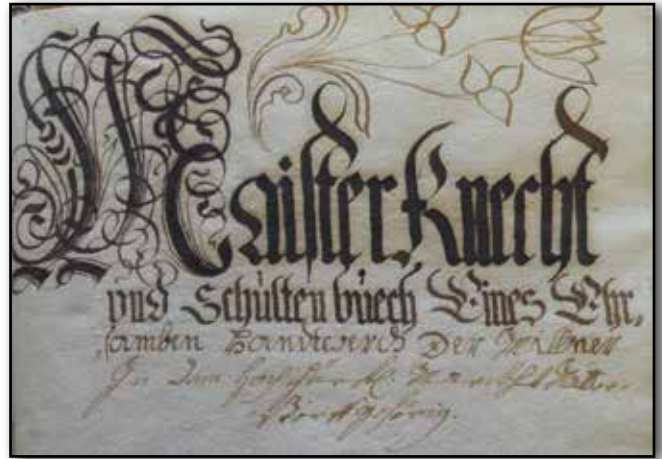 Maister Knecht
vnd Schulten büech Eines Ehr,
samben Handtwerch Der Millner
In dem
gehörig.